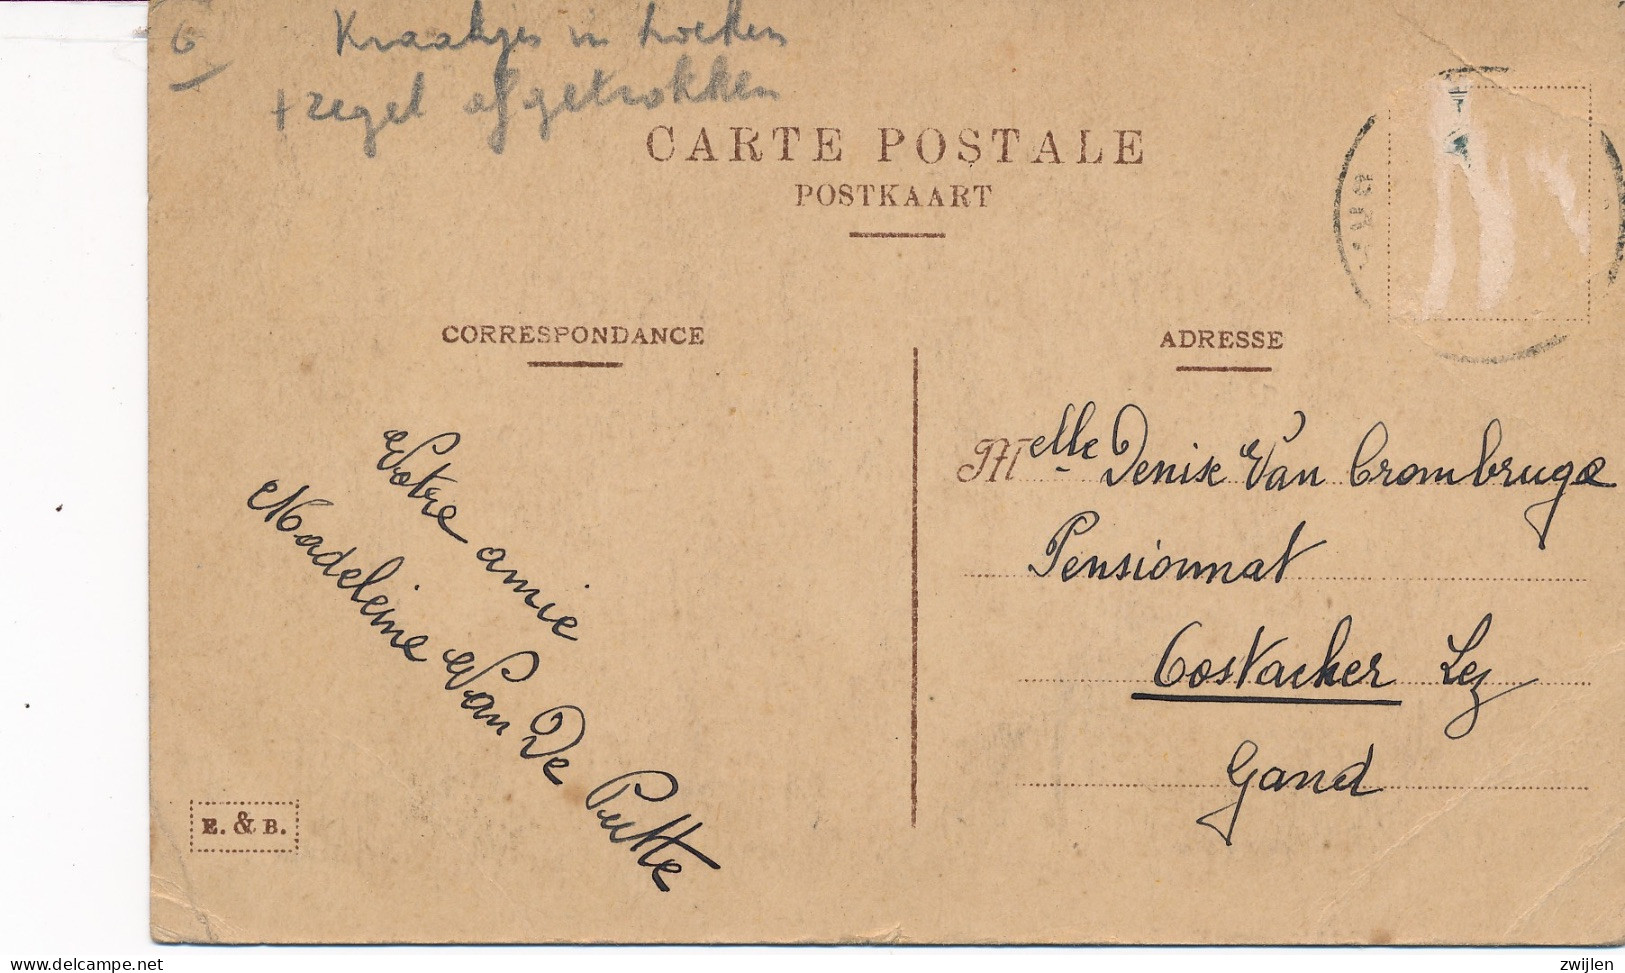 6
Kraakjes in hoeken
+ zegel afgetrokken
CARTE POSTALE
POSTKAART
CORRESPONDANCE
ADRESSE
Votre amie
Madeleine Van De Putte
Melle Denise Van Crombruge
Pensionnat
Oostacker Lez
Gand
E. & B.
delcampe.net
zwijlen